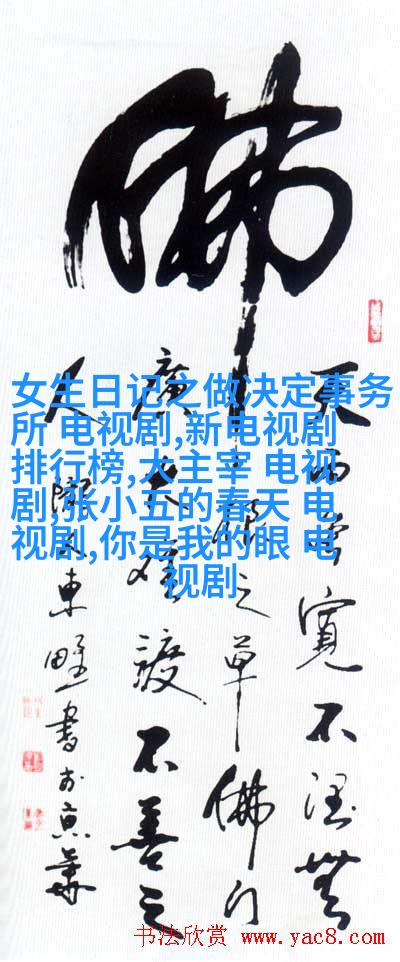 佛
天雨虽宽不润无
根之草佛门
广大难渡不善之
人
东野书于京华
女生日记之做决定事务
所 电视剧,新电视剧
排行榜,大主宰 电视
剧,张小五的春天 电
视剧,你是我的眼 电
视剧
书法欣赏 www.yac8.com